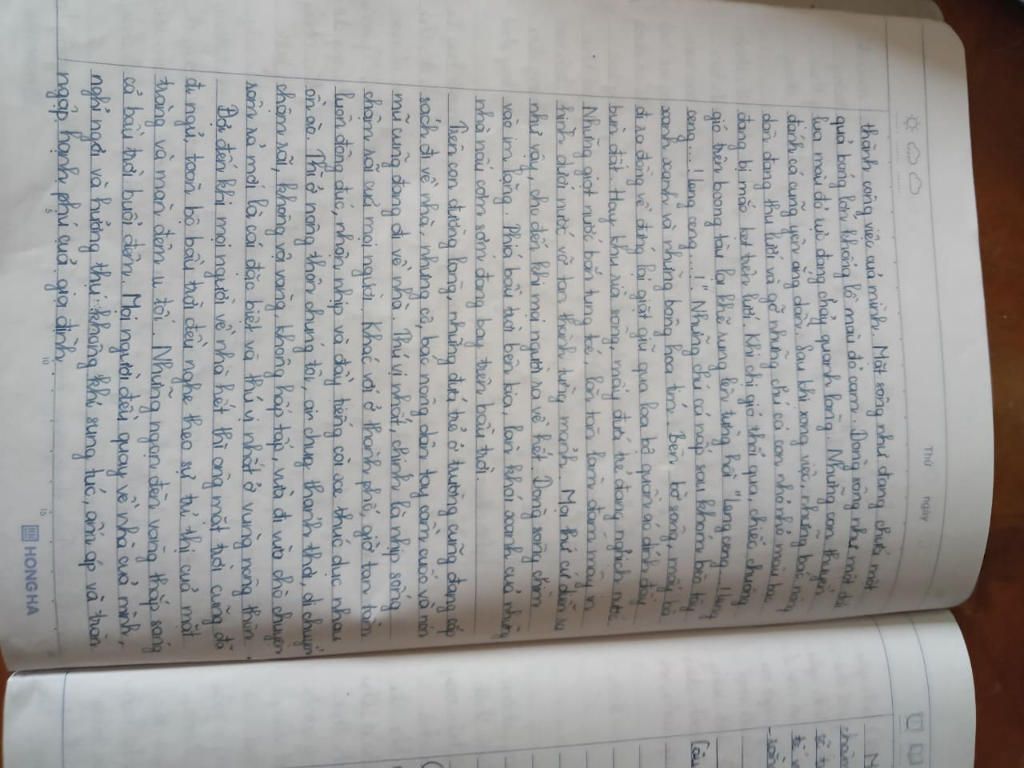 THỨ NGÀY
thành công việc của mình. Mặt sông như đang chứa một
quả bóng lớn khổng lồ màu đỏ cam. Dòng sông như một dải
lụa màu đỏ rực đang chảy quanh làng. Những con thuyền
đánh cá cũng yên ang dần. Sau khi xong việc, những bác nông
dân đang thu lưới và gỡ những chú cá con nhỏ nhỏ màu bạc
đang bị mắc kẹt trên lưới. Khi chị gió thổi qua, chiếc chuông
gió trên boong tàu lại khẽ rung lên từng hồi " leng ceng... leng
ceng... ! leng ceng......! " Những chú cá nấp sau khóm bèo tây
xanh xanh và những bông hoa tím. Bên bờ sông, mấy bà
đi ra đồng về đang lại giặt giũ qua loa bộ quần áo dính đầy
bùn đất. Hay khu vui sông, mấy đứa trẻ đang nghịch nước.
Những giọt nước bắn tung toé, làm tan đám mây in
hình dưới nước vỡ tan thành từng mảnh. Mọi thứ cứ diễn ra
như vậy, cho đến khi mọi người ra về hết. Dòng sông chìm
vào im lặng. Phía bầu trời bên kia, làn khói xanh của những
nhà nấu cơm sớm đang bay trên bầu trời.
Trên con đường làng, những đứa trẻ ở trường cũng đang cắp
sách đi về nhà, những cô, bác nông dân tay cầm cuốc và nón
mũ cũng đang đi về nhà. Thú vị nhất, chính là nhịp sống
chậm rãi của mọi người. Khác với ở thành phố, giờ tan tầm
luôn đông đúc, nhộn nhịp và đầy tiếng còi xe thúc dục nhau
ồn ào. Thì ở nông thôn chúng tôi, ai chung thảnh thơi, di chuyển
chậm rãi, không vội vàng không hấp tấp, vừa đi vừa trò chuyện
rôm rả mới là cái đặc biệt và thú vị nhất ở vùng nông thôn.
Đợi đến khi mọi người về nhà hết thì ông mặt trời cũng đã
đi ngủ, toàn bộ bầu trời đều nghe theo sự trị của mặt
trăng và màn đêm u tối. Những ngọn đèn vàng thắp sáng
cả bầu trời buổi đêm. Mọi người đều quay về nhà của mình,
nghỉ ngơi và hưởng thụ không khí sung túc, ấm áp và tràn
ngập hạnh phúc của gia đình.
5 10 15
HONG HA